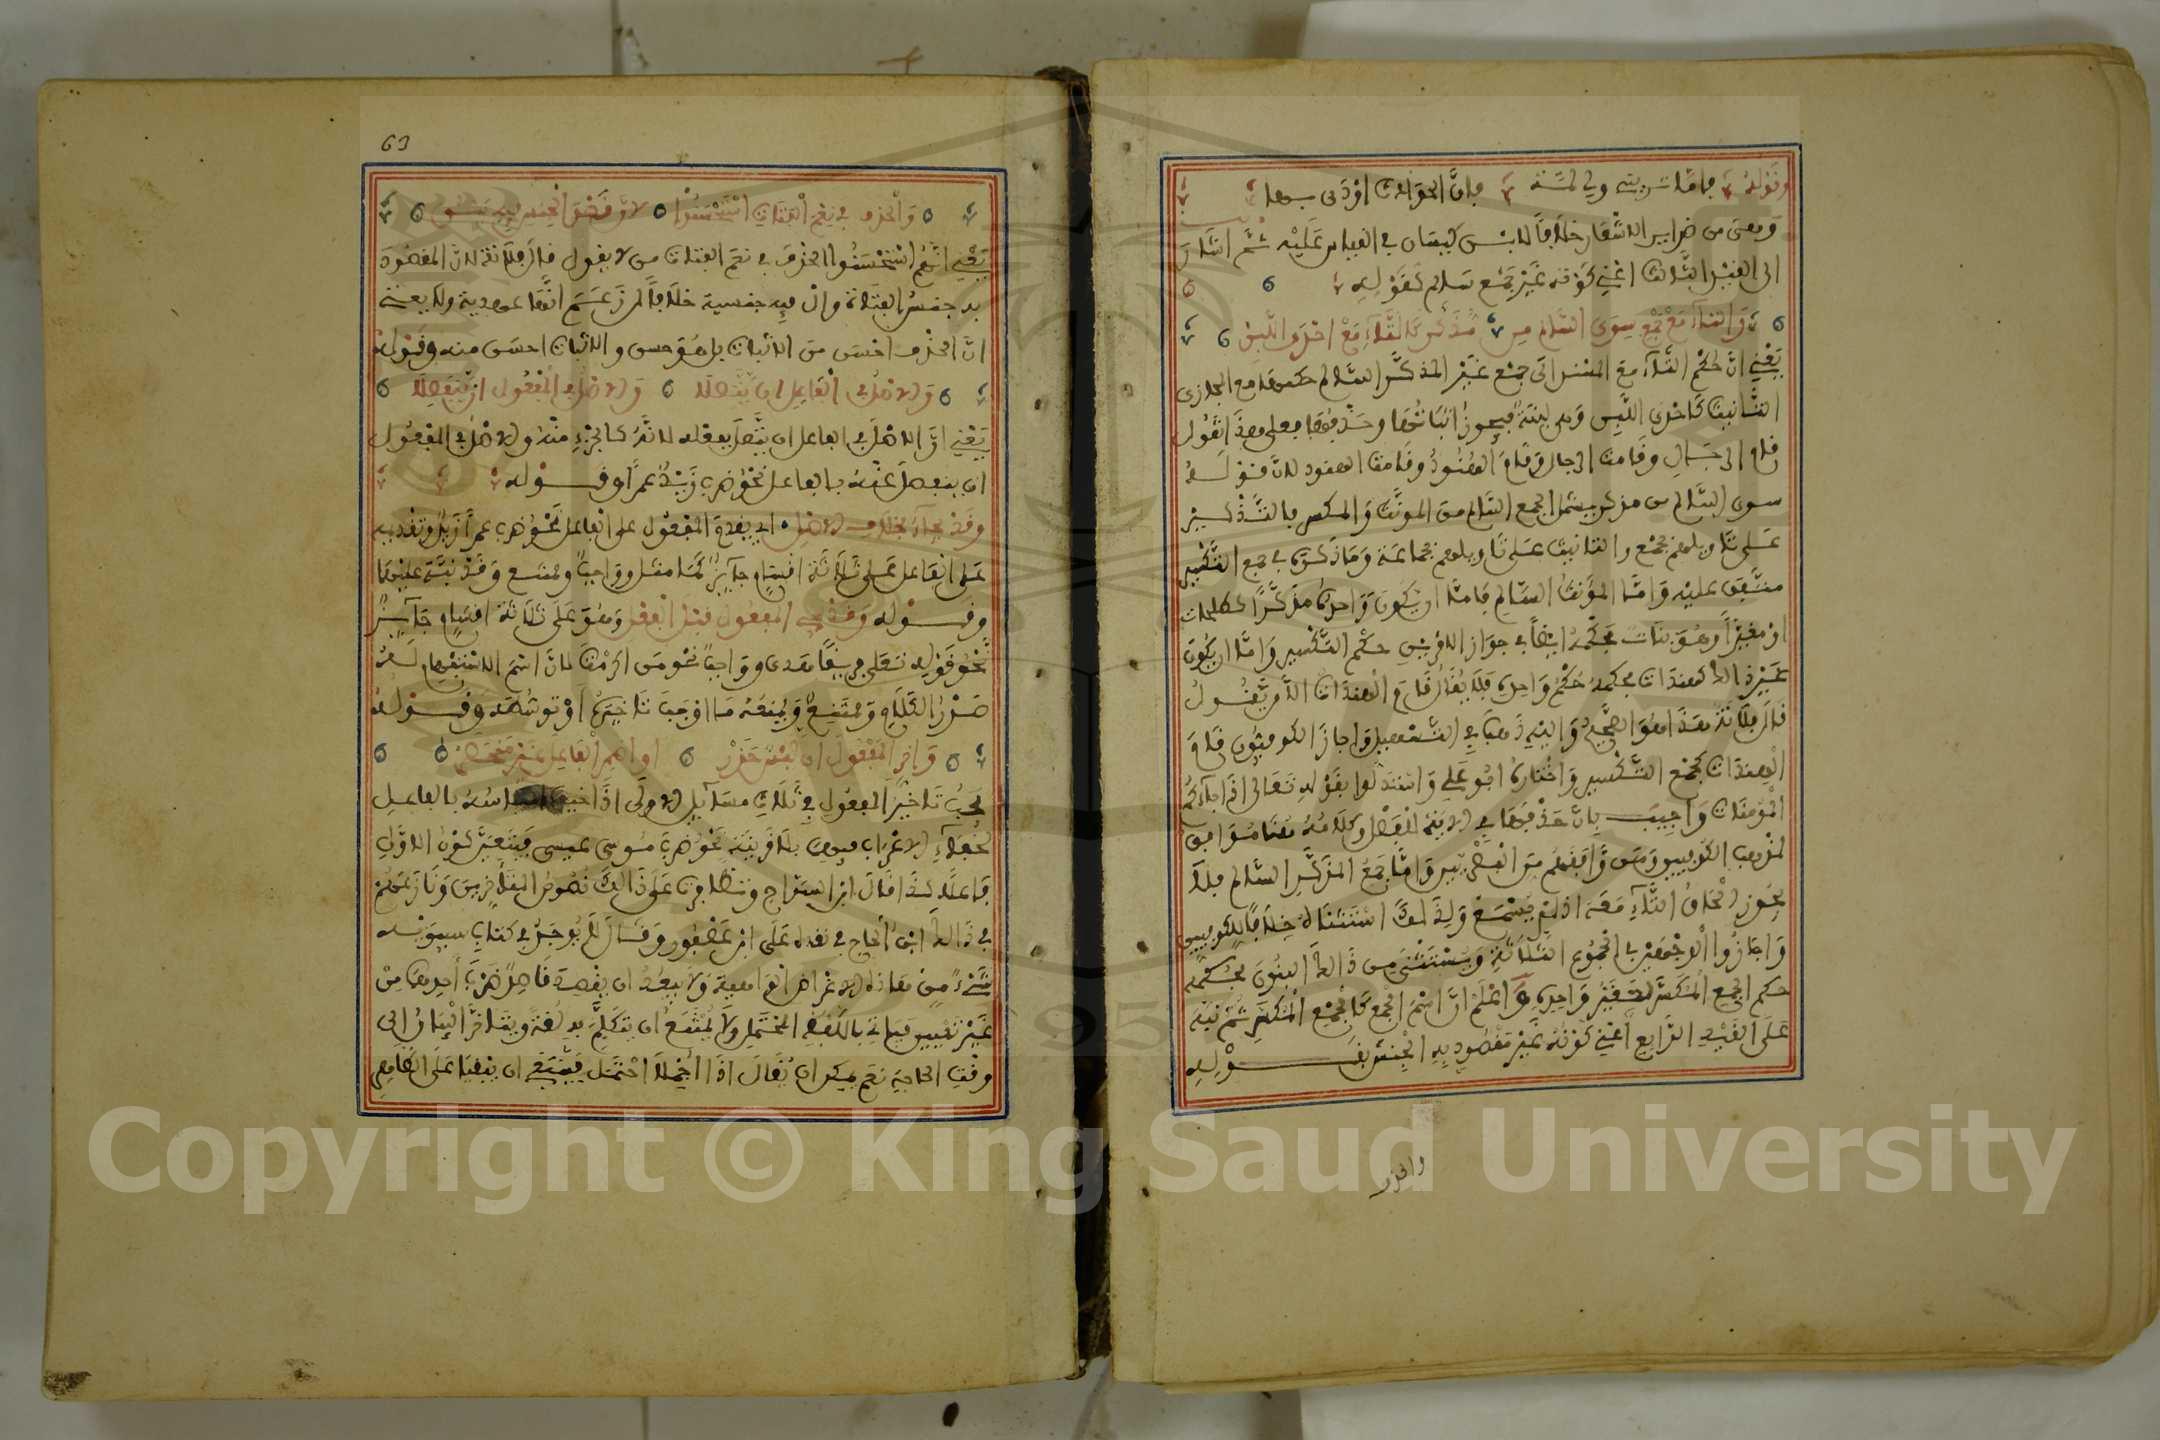 وقوله فاما تريني ولي لمة فان الحوادث اودى بها
وبعض من ضراير الاشعار خلافا لابن كيسان في القياس عليه ثم اشار
الى القيد الثالث اعني كونه غير جمع سالم بقوله
والتاء مع جمع سوى السالم من مذكر كالتاء مع احدى اللبن
يعني ان حكم التاء مع المسند الى جمع غير المذكر السالم حكمها مع المجازي
التانيث كاحدى اللبن وهي لبنة فيجوز اثباتها وحذفها فعلى هذا تقول
قام الرجال وقامت الرجال وقام الهنود وقامت الهنود لان قوله
سوى السالم من مذكر يشمل الجمع السالم من المونث والمكسر فالتذكير
على تاويلهم بجمع والتانيث على تاويلهم بجماعة وما ذكره في جمع التكسير
متفق عليه واما المؤنث السالم فاما ان يكون واحده مذكرا كطلحات
او مغيرا وهو بنات فحكمه ايضا في جواز الامرين حكم التكسير واما ان يكون
غير ذلك كهندات فحكمه حكم واحده فلا يقال قام الهندات الا من يقول
قال فلانة هذا هو الصحيح واليه ذهب في التسهيل واجاز الكوفيون قام
الهندات كجمع التكسير واختاره ابو علي واستدلوا بقوله تعالى اذا جاءكم
المؤمنات واجيب بان حذفها في الاية للفصل وكلامه هنا موافق
لمذهب الكوفيين ومن وافقهم من البصريين واما جمع المذكر السالم فلا
يجوز الحاق التاء معه اذ لم يسمع ولذلك استثناه خلافا للكوفيين
واجازوا الوجهين في الجموع الثلاثة ويستثنى من ذلك البنون فحكمه
حكم الجمع المكسر لتغير واحده واعلم ان اسم الجمع كالجمع المكسر ثم نبه
على القيد الرابع اعني كونه غير مقصود به الجنس بقوله
والحذف
63
والحذف في نعم الفتاة استحسنوا لان قصد الجنس فيه بين
يعني انهم استحسنوا الحذف في نعم الفتاة من لا يقول قال فلانة لان المقصود
به جنس الفتاة وال فيه جنسية خلافا لمن زعم انها عهدية ولا يعني
ان الحذف احسن من الاثبات بل هو حسن والاثبات احسن منه وقوله
والاصل في الفاعل ان يتصلا والاصل في المفعول ان ينفصلا
يعني ان الاصل في الفاعل ان يتصل بفعله لانه كالجزء منه والاصل في المفعول
ان ينفصل عنه بالفاعل نحو ضرب زيد عمرا وقوله
وقد يجاء بخلاف الاصل اي بتقديم المفعول على الفاعل نحو ضرب عمرا زيد وتقديمه
على الفاعل على ثلاثة اقسام جايز كما مثل وواجب وممتنع وقد نبه عليها
وقوله وقد يجي المفعول قبل الفعل وهو على ثلاثة اقسام جايز
نحو قوله تعالى فريقا هدى وواجب نحو من اكرمت لان اسم الاستفهام له
صدر الكلام وممتنع ويمنعه ما اوجب تاخيره او توسطه وقوله
واخر المفعول ان لبس حذر او اضمر الفاعل غير منحصر
يجب تاخير المفعول في ثلاث مسايل الاولى اذا خيف التباسه بالفاعل
لخفاء الاعراب فيهما بلا قرينة نحو ضرب موسى عيسى فيتعين كون الاول
فاعلا كذا قال ابن السراج وتظافرت على ذلك نصوص المتاخرين ونازعهم
في ذلك ابن الحاج في نقده على ابن عصفور وقال لم يوجد في كتاب سيبويه
شيء من هذه الاغراض الواهية ولا يبعد ان يقصد قاصد ضرب احدهما من
غير تعيين فياتي باللفظ المحتمل ولا يمتنع ان يتكلم به لغة ويتاخر البيان الى
وقت الحاجة نعم يمكن ان يقال اذا اجمل احتمل فيمتنع ان يبقيا على الظاهر